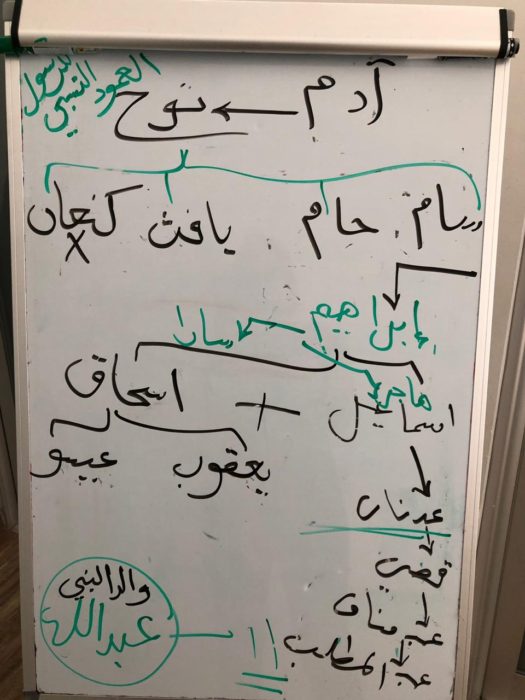 العمود النسبي للرسول
آدم ← نوح
سام حام يافث كنعان
X
إبراهيم سارا
هاجر
اسماعيل + اسحاق
يعقوب عيسو
عدنان
قصي
عبد مناف
عبد المطلب
والد النبي
عبد الله